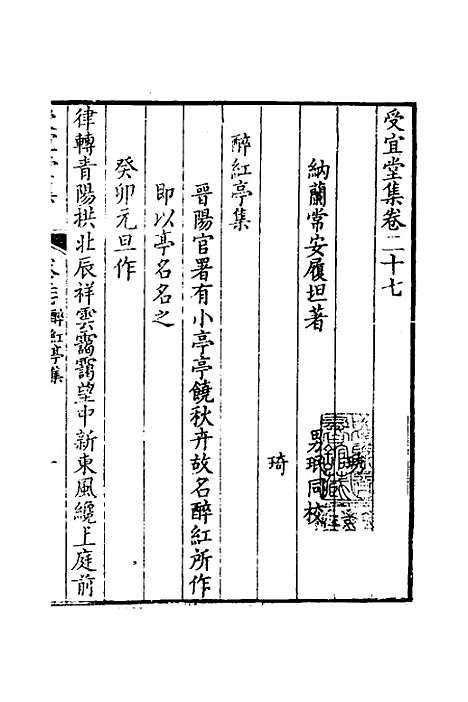 受宜堂集卷二十七
納蘭常安履坦著
男珉同校
琦
醉紅亭集
晉陽官署有小亭亭饒秋卉故名醉紅所作
即以亭名名之
癸卯元旦作
律轉青陽拱北辰祥雲靄靄望中新東風纔上庭前
醉紅亭集